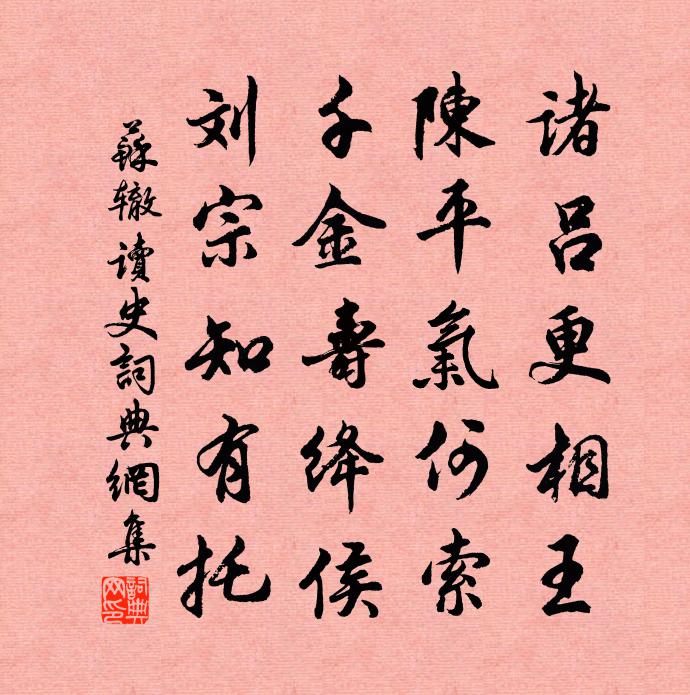 诸吕更相王
陳平氣何索
千金壽绛侯
刘宗知有托
蘇辙讀史詞典網集
詞典網印